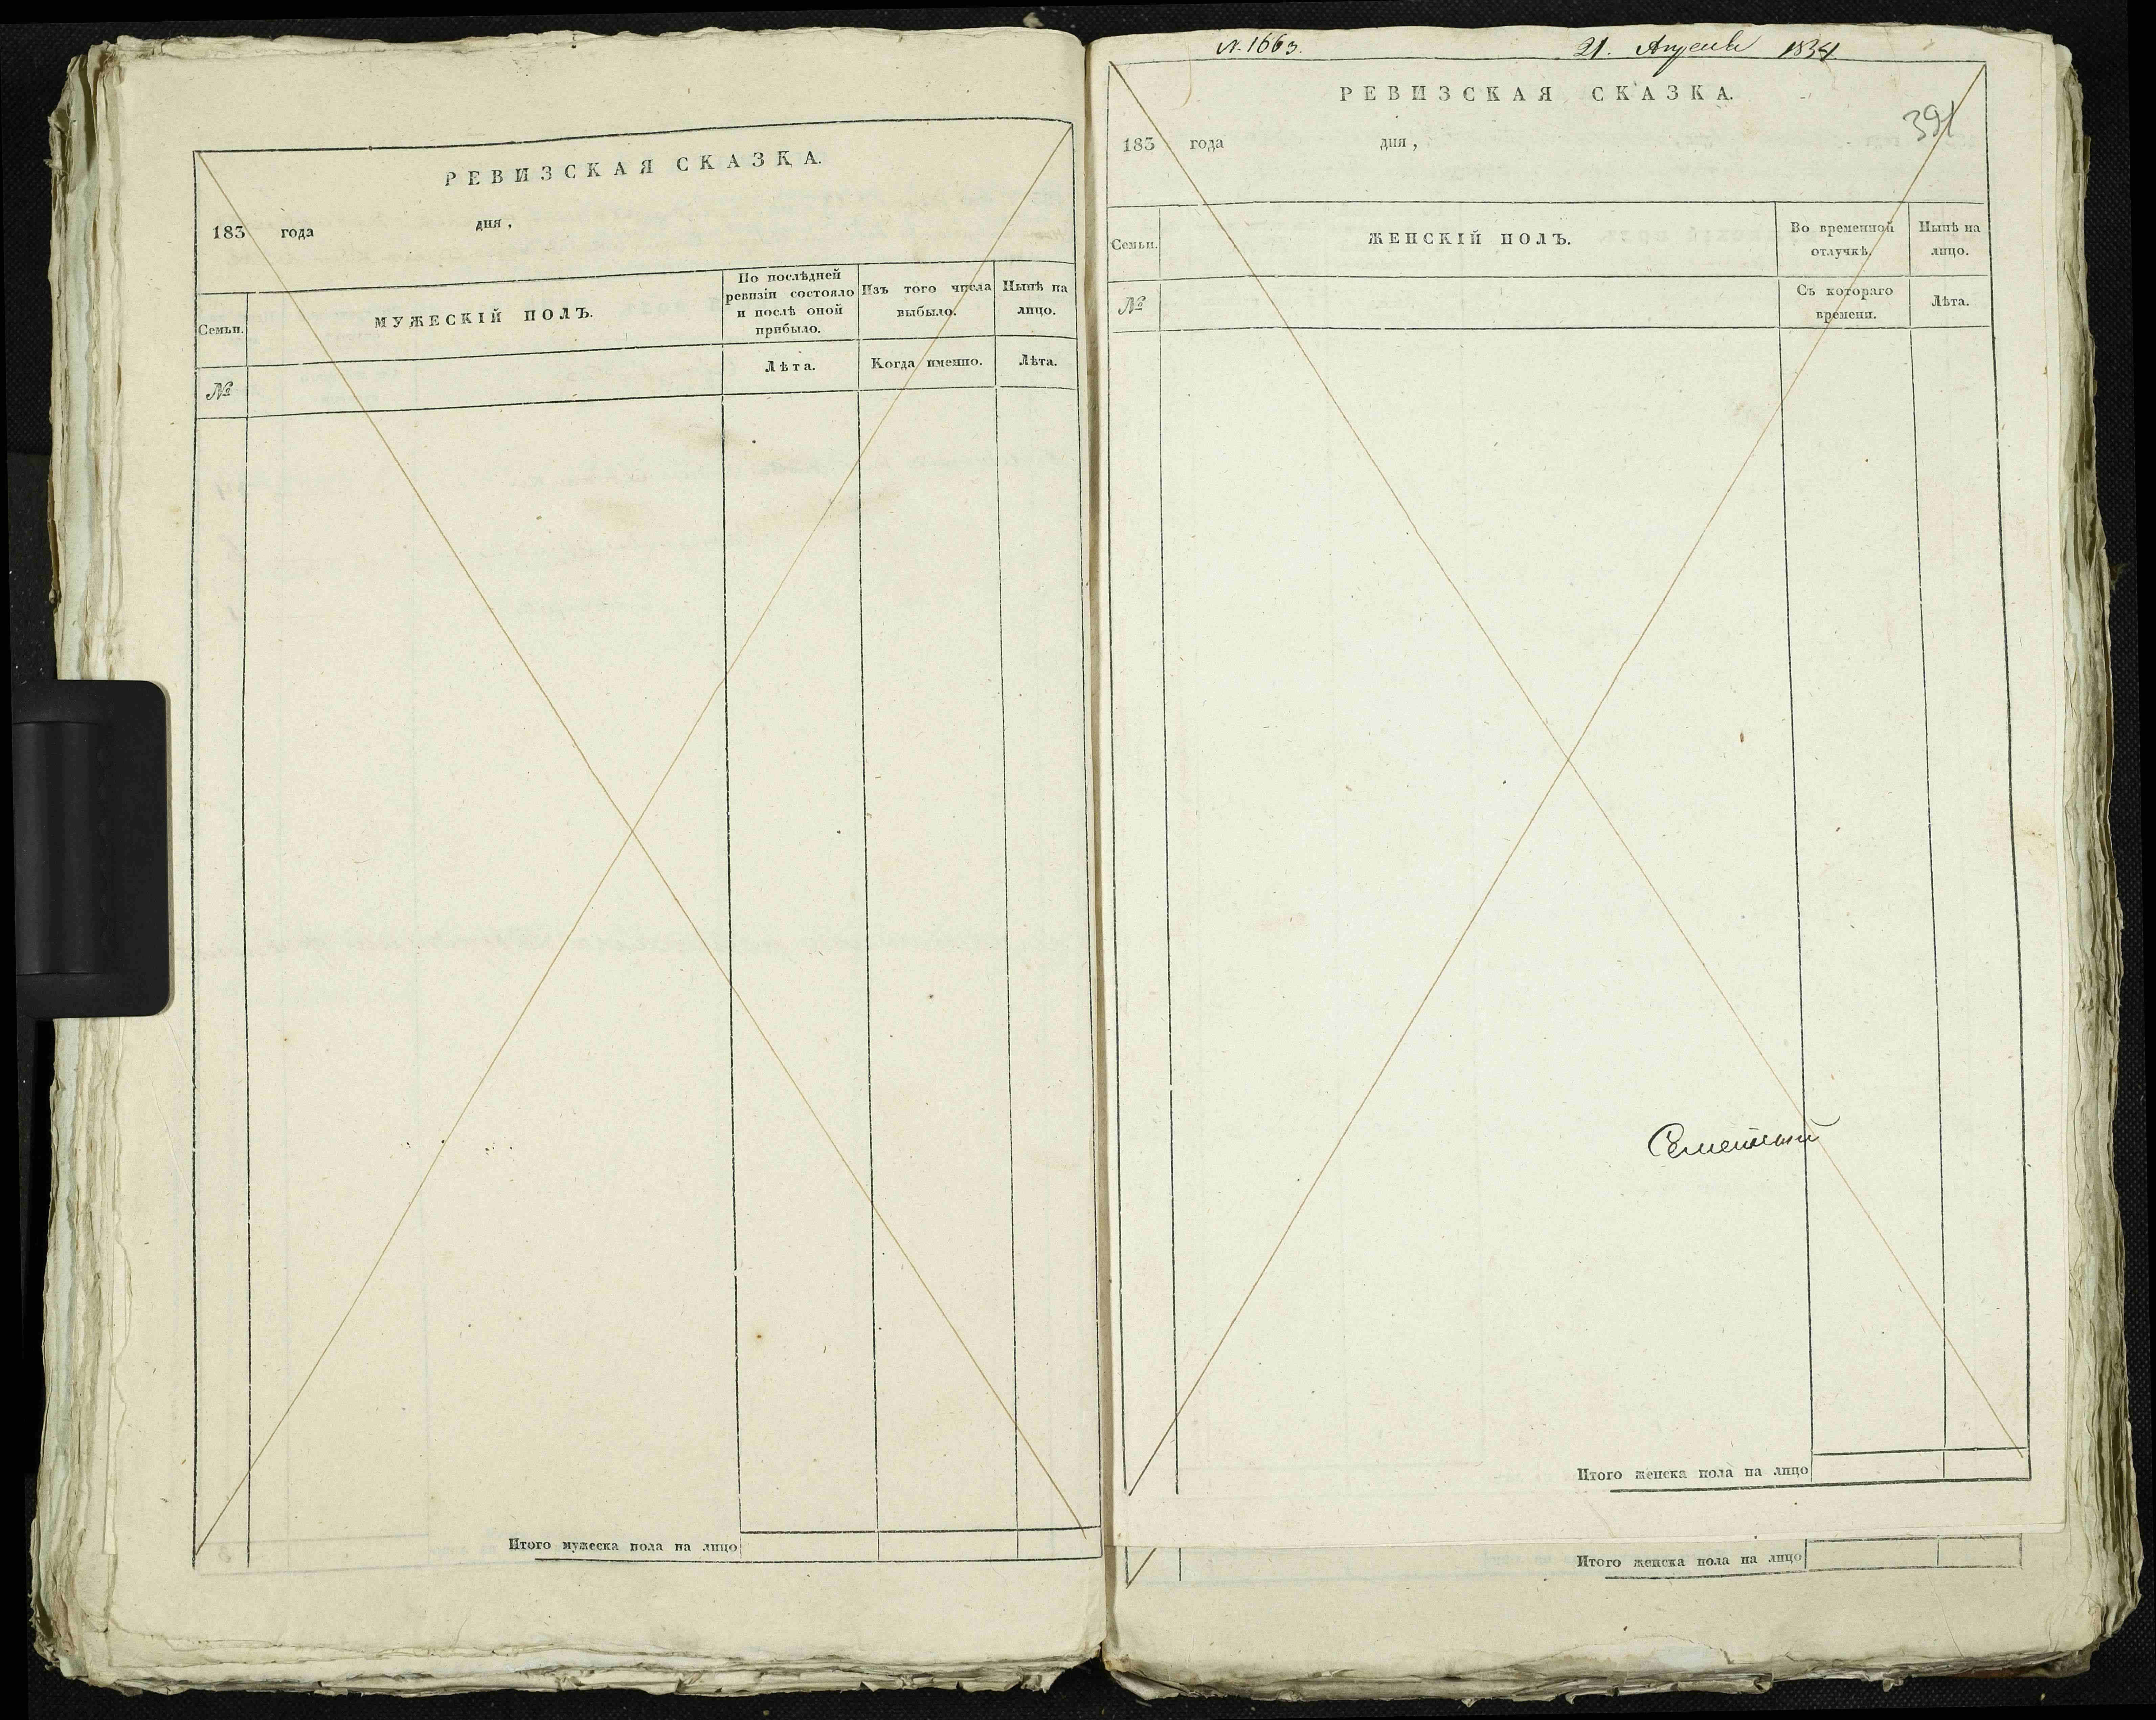 РЕВИЗСКАЯ СКАЗКА.
183 года дня,
Семьи.
МУЖЕСКІЙ ПОЛЪ.
По послѣдней ревизіи состояло и послѣ оной прибыло.
Изъ того числа выбыло.
Нынѣ на лицо.
№
Лѣта.
Когда именно.
Лѣта.
Итого мужеска пола на лицо
N. 1663. 21. Апреля 1834
РЕВИЗСКАЯ СКАЗКА.
391
183 года дня,
Семьи.
ЖЕНСКІЙ ПОЛЪ.
Во временной отлучкѣ.
Нынѣ на лицо.
№
Съ котораго времени.
Лѣта.
Итого женска пола на лицо
Итого женска пола на лицо